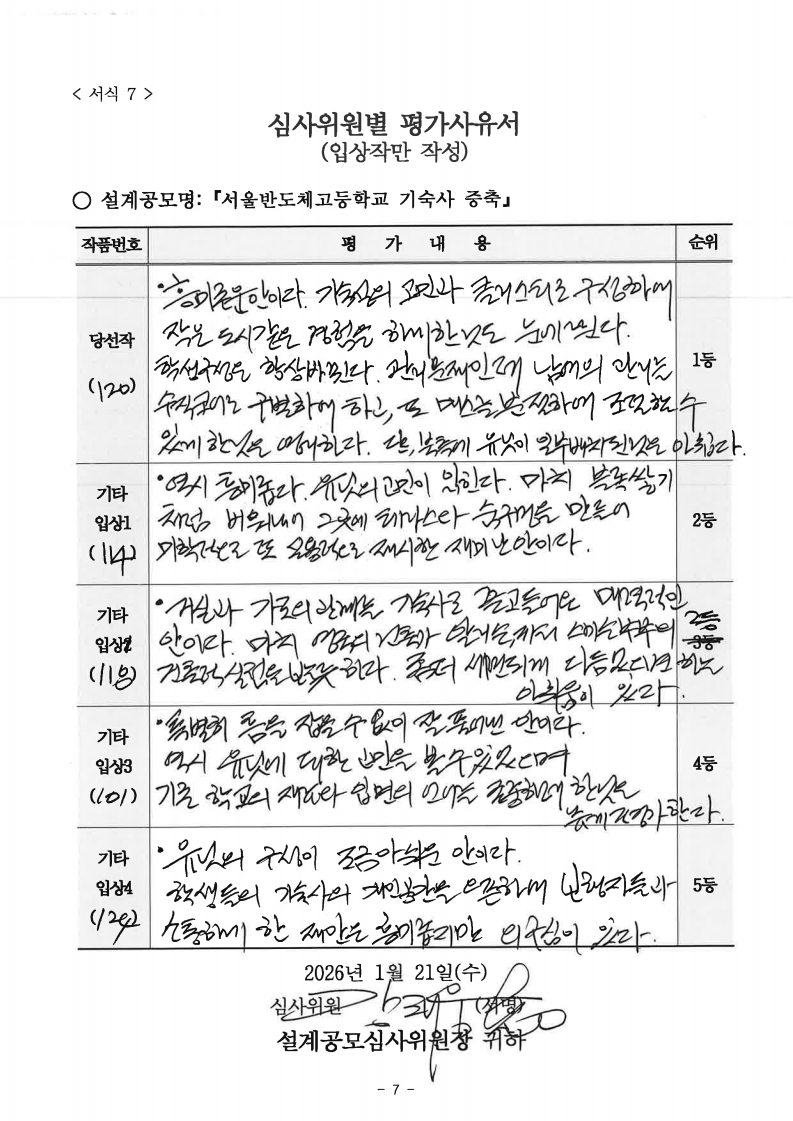 < 서식 7 >
심사위원별 평가사유서
(입상작만 작성)
○ 설계공모명: 『서울반도체고등학교 기숙사 증축』
작품번호 평 가 내 용 순위
당선작
(120)
·흥미로운 안이다. 기숙사의 고민과 클러스터로 구성하여
작은 도시같은 경험을 하게한것도 눈에 띈다.
학생구성은 항상바뀐다. 관리문제인 남여의 관리는
수직적으로 구별하여 하고, 또 매스를 분절하여 조망할 수
있게 한것은 영리하다. 다만, 북측에 유닛이 일부배치된것은 아쉽다.
1등
기타
입상1
(114)
·역시 흥미롭다. 유닛의 고민이 읽힌다. 마치 블록쌓기
처럼 비워내어 그곳에 테라스와 숨구멍을 만들어
미학적으로 또 실용적으로 제시한 재미난 안이다.
2등
기타
입상2
(118)
·거실과 가로의 관계를 기숙사로 끌고들어온 매력적인
안이다. 마치 영국의 건축가 스미슨부부의
건축적 실험을 하다. 좀더 세련되게 다듬었다면 하는
아쉬움이 있다.
2등
3등
기타
입상3
(101)
·특별히 흠을 잡을 수 없이 잘 풀어낸 안이다.
역시 유닛에 대한 고민을 볼 수 있으며
기존 학교의 재료와 입면의 언어를 존중하려 한것은
높게 평가한다.
4등
기타
입상4
(124)
·유닛의 구성이 조금 아쉬운 안이다.
학생들의 기숙사의 개인공간을 오픈하여 보행자들과
소통하게 한 제안은 흥미롭지만 의구심이 있다.
5등
2026년 1월 21일(수)
심사위원 (서명)
설계공모심사위원장 귀하
- 7 -